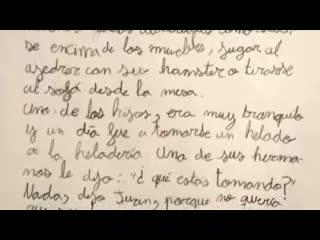 se encima de los muebles, jugar al
ajedror con su hamster o tirarse
al sofá desde la mesa.
Uno de los hijos, era muy tranquilo
y un día fue a tomarse un helado
a la heladería Una de sus herma
nos le dijo: "¿qué estás tomando?"
Nada, dijo Juan, porque no quería